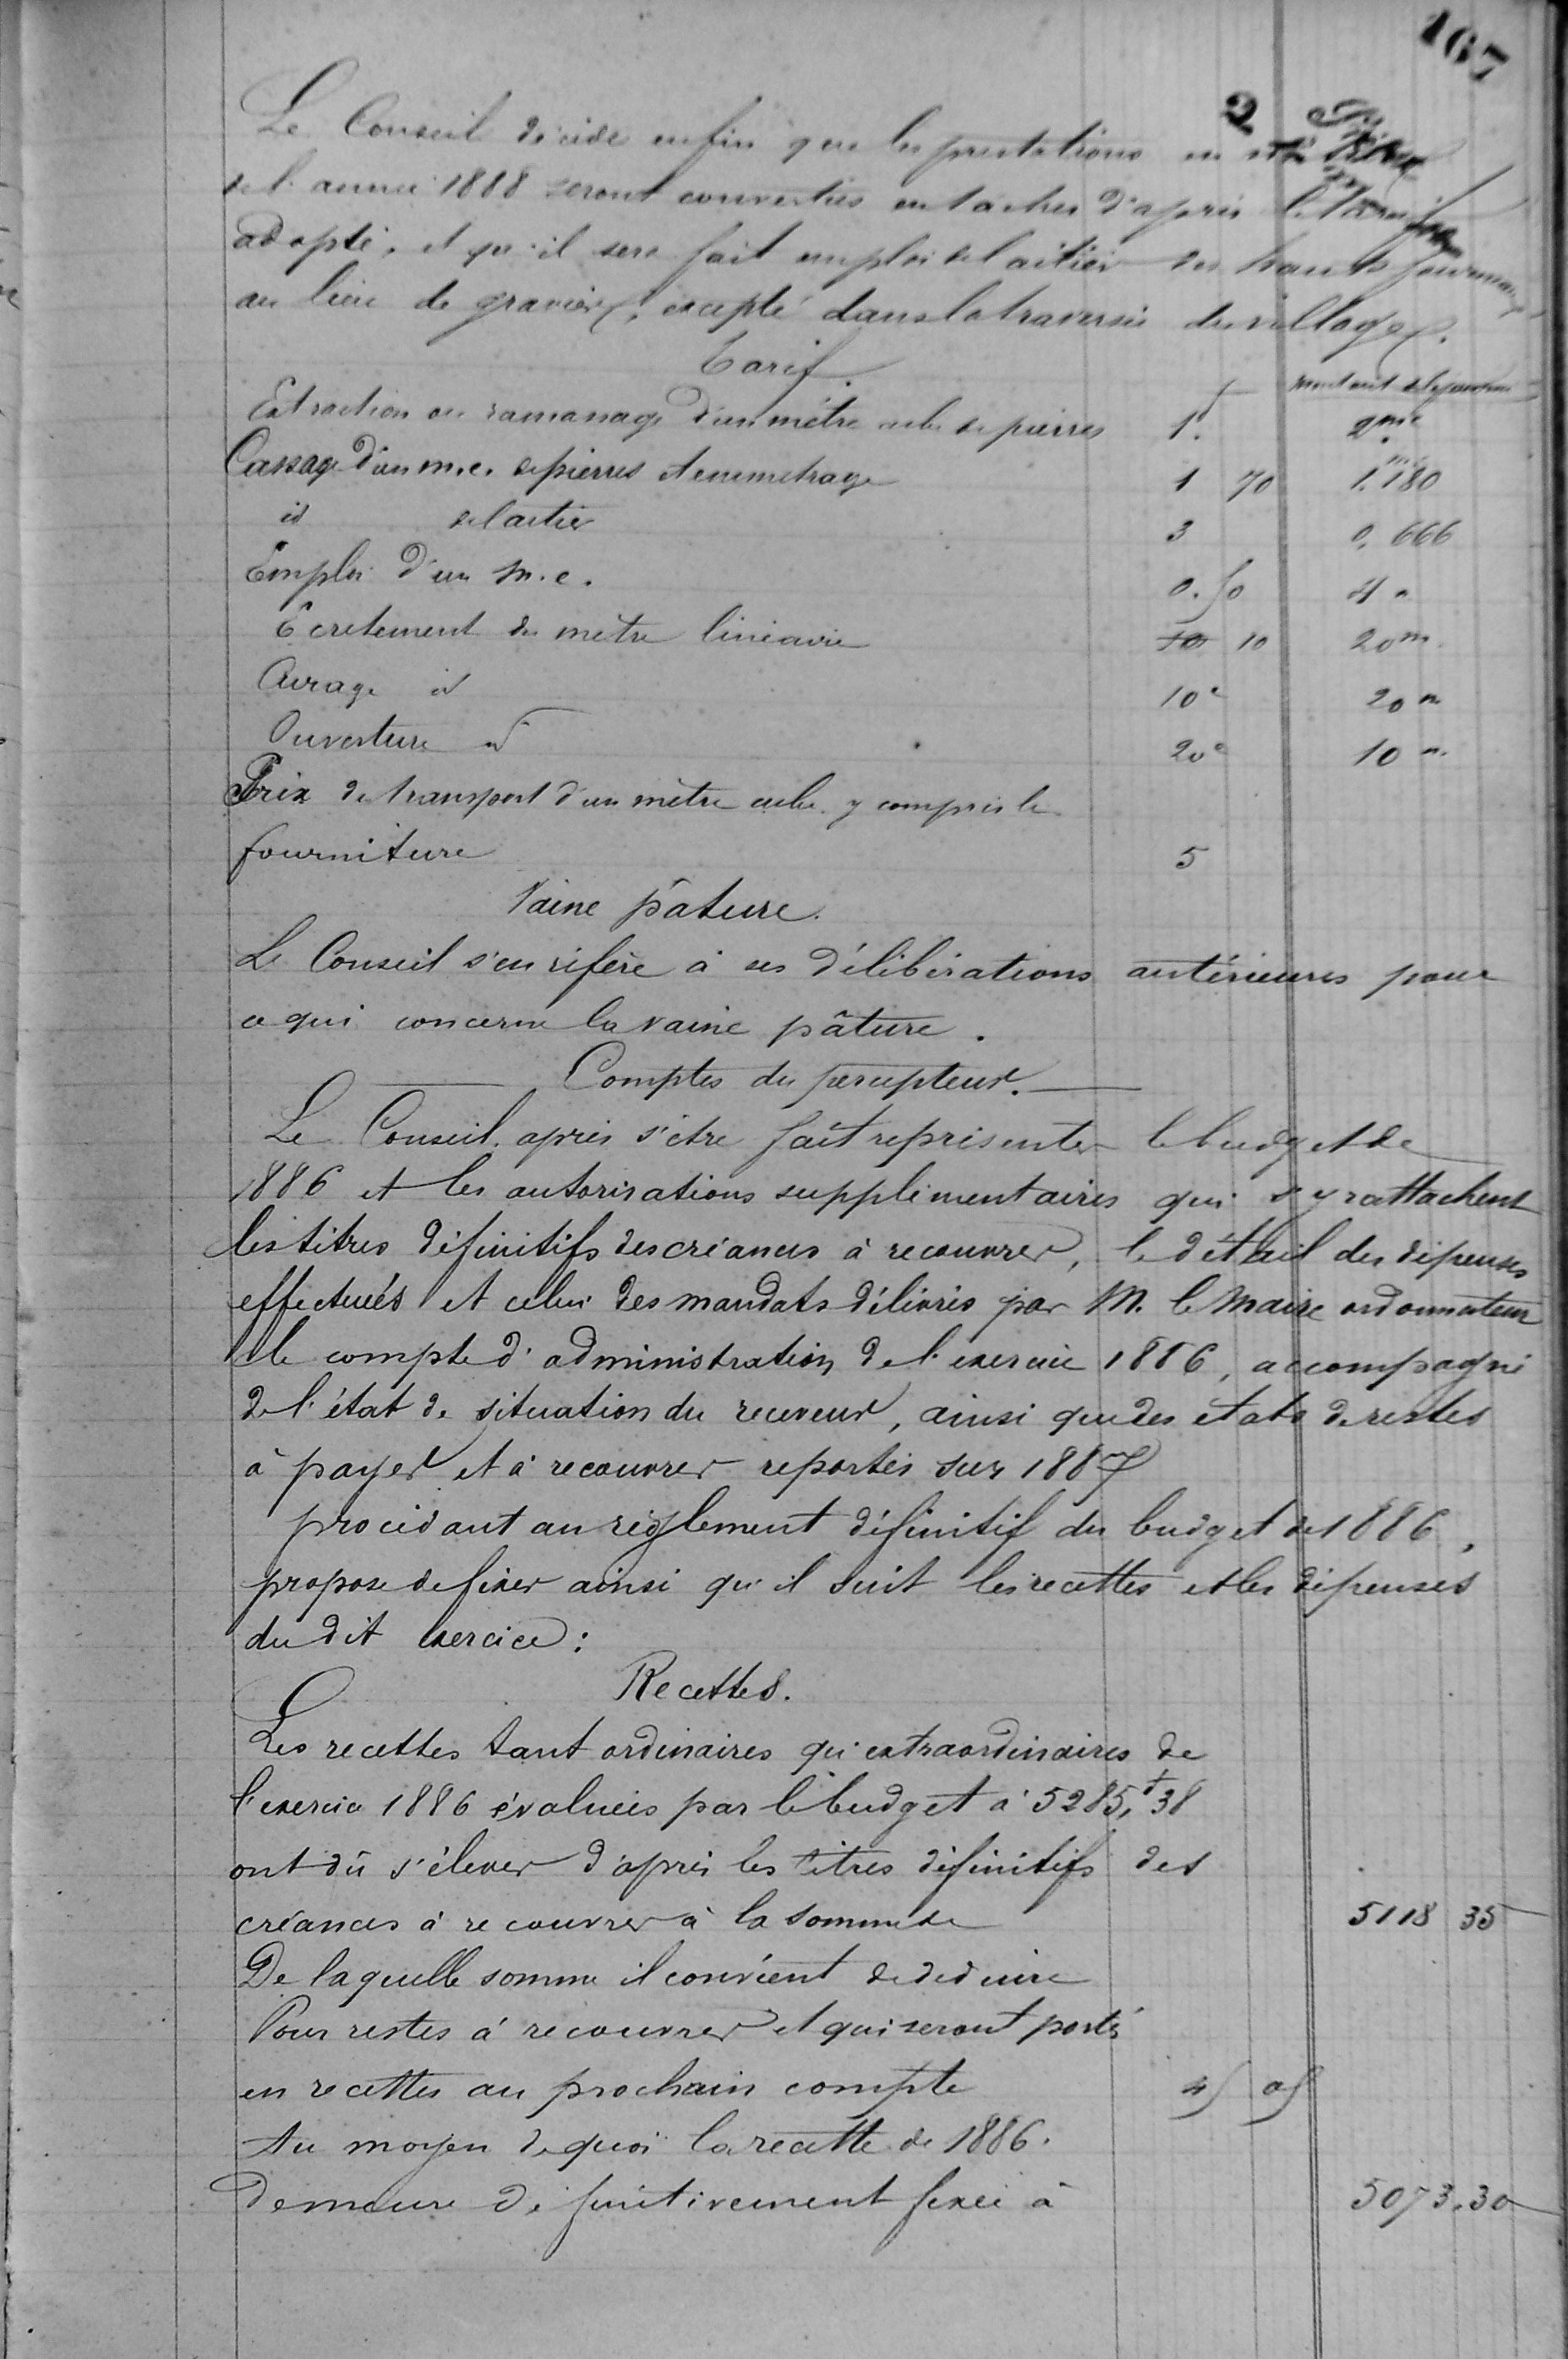 167
2
Le Conseil décide enfin que les prestations en
de l'année 1888 seront converties en taches d'après le tarif
adopté, et qu'il sera fait emploi de laitier des hauts fourneaux
au lieu de gravier, excepté dans la traversée du village.
Tarif.
montant de journée
Extraction ou ramassage d'un mètre cube de pierres 1f. 2mc
Cassage d'un m.c. de pierres et emmetrage 1 70 1.180
id de laitier 3 0.666
Emploi d'un m.c. 0.50 4 "
Ecretement du mètre linéaire 10 10 20m
Curage id 10c 20m
Ouverture id 20c 10m.
Prix de transport d'un mètre cube y compris la
fourniture 5
Vaine pâture.
Le Conseil s'en réfère à ses délibérations antérieures pour
ce qui concerne la vaine pâture.
Comptes du percepteur.
Le Conseil, après s'être fait représenter le budget de
1886 et les autorisations supplémentaires qui s'y rattachent
les titres définitifs des créances à recouvrer, le détail des dépenses
effectuées et celui des mandats délivrés par M. le Maire ordonnateur
le compte d'administration de l'exercice 1886, accompagné
de l'état de situation du receveur, ainsi que des etats de restes
à payer et à recouvrer reportés sur 1887
procédant au règlement définitif du budget de 1886,
propose de fixer ainsi qu'il suit les recettes et les dépenses
du dit exercice :
Recettes.
Les recettes tant ordinaires qu'extraordinaires de
l'exercice 1886 évaluées par le budget à 5285,f 38
ont dû s'élever d'après les titres définitifs des
créances à recouvrer à la somme de 5118 35
De laquelle somme il convient de deduire
Pour restes à recouvrer et qui seront portés
en recettes au prochain compte 45 05
Au moyen de quoi la recette de 1886.
demeure définitivement fixée à 5073.30